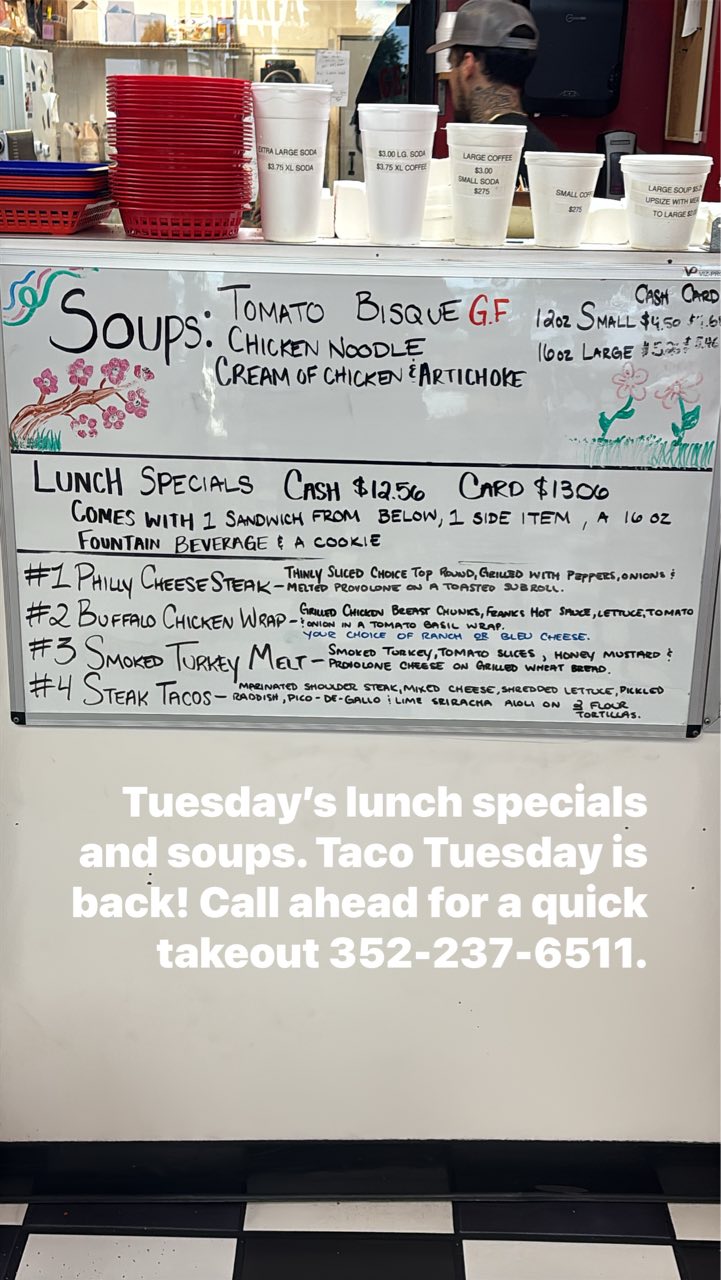 EXTRA LARGE SODA
$3.75 XL SODA
$3.00 LG. SODA
$3.75 XL COFFEE
LARGE COFFEE
$3.00
SMALL SODA
$275
SMALL
$275
LARGE SOUP
UPSIZE WITH
TO LARGE
SOUPS: TOMATO BISQUE G.F
CHICKEN NOODLE
CREAM OF CHICKEN & ARTICHOKE
CASH CARD
12oz SMALL $4.50
16oz LARGE
LUNCH SPECIALS CASH $12.56 CARD $1306
COMES WITH 1 SANDWICH FROM BELOW, 1 SIDE ITEM, A 16 OZ
FOUNTAIN BEVERAGE & A COOKIE
#1 PHILLY CHEESE STEAK – THINLY SLICED CHOICE TOP ROUND, GRILLED WITH PEPPERS, ONIONS &
MELTED PROVOLONE ON A TOASTED SUBROLL.
#2 BUFFALO CHICKEN WRAP – GRILLED CHICKEN BREAST CHUNKS, FRANKS HOT SAUCE, LETTUCE, TOMATO
& ONION IN A TOMATO BASIL WRAP.
YOUR CHOICE OF RANCH OR BLEU CHEESE.
#3 SMOKED TURKEY MELT – SMOKED TURKEY, TOMATO SLICES, HONEY MUSTARD &
PROVOLONE CHEESE ON GRILLED WHEAT BREAD.
#4 STEAK TACOS – MARINATED SHOULDER STEAK, MIXED CHEESE, SHREDDED LETTUCE, PICKLED
RADDISH, PICO-DE-GALLO & LIME SRIRACHA AIOLI ON 2 FLOUR
TORTILLAS.
Tuesday's lunch specials
and soups. Taco Tuesday is
back! Call ahead for a quick
takeout 352-237-6511.